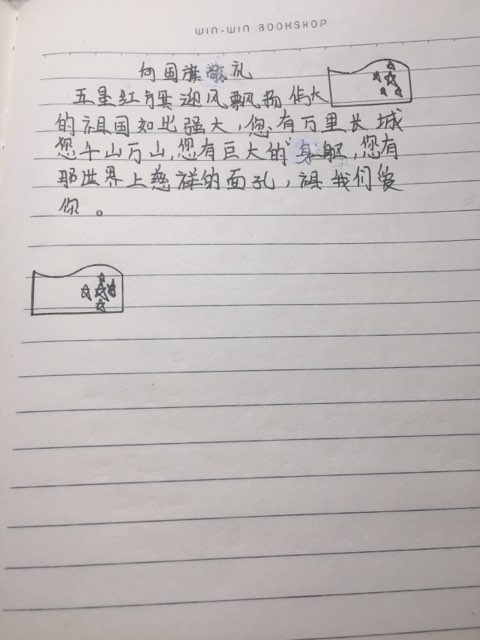 WIN-WIN BOOKSHOP
向国旗敬礼
五星红旗迎风飘扬伟大
的祖国如此强大,您有万里长城
您千山万山,您有巨大的身躯,您有
那世界上慈祥的面孔,祖我们爱
你。